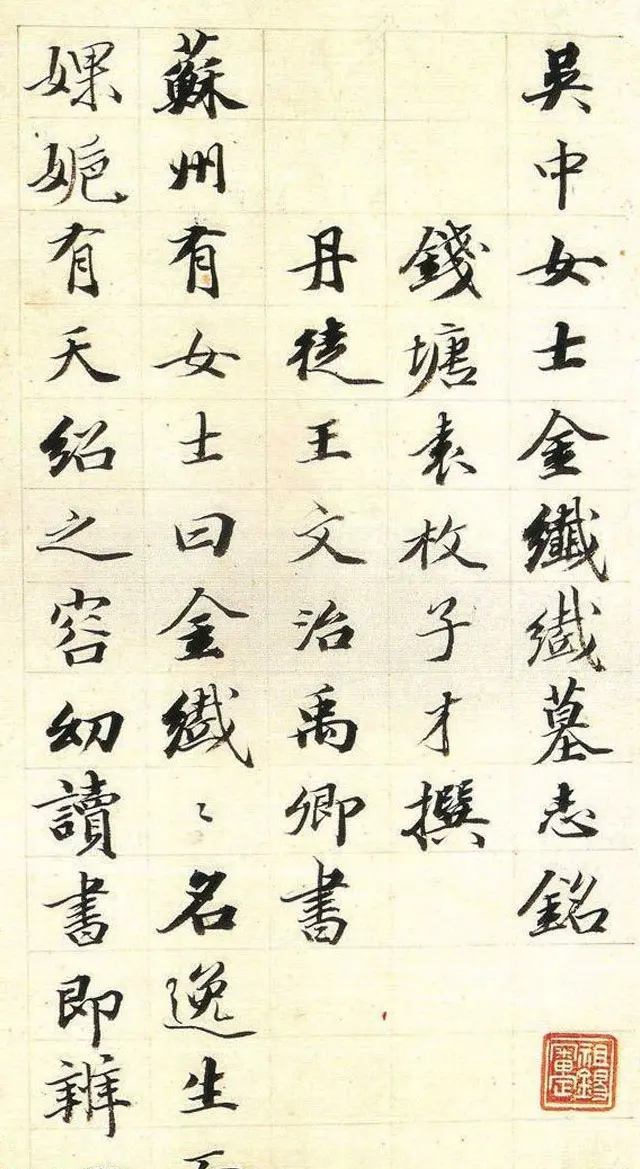 吳中女士金纖纖墓志銘
錢塘袁枚子才撰
丹徒王文治禹卿書
蘇州有女士曰金纖〻名逸生而
婐㛂有天紹之容幼讀書即辨